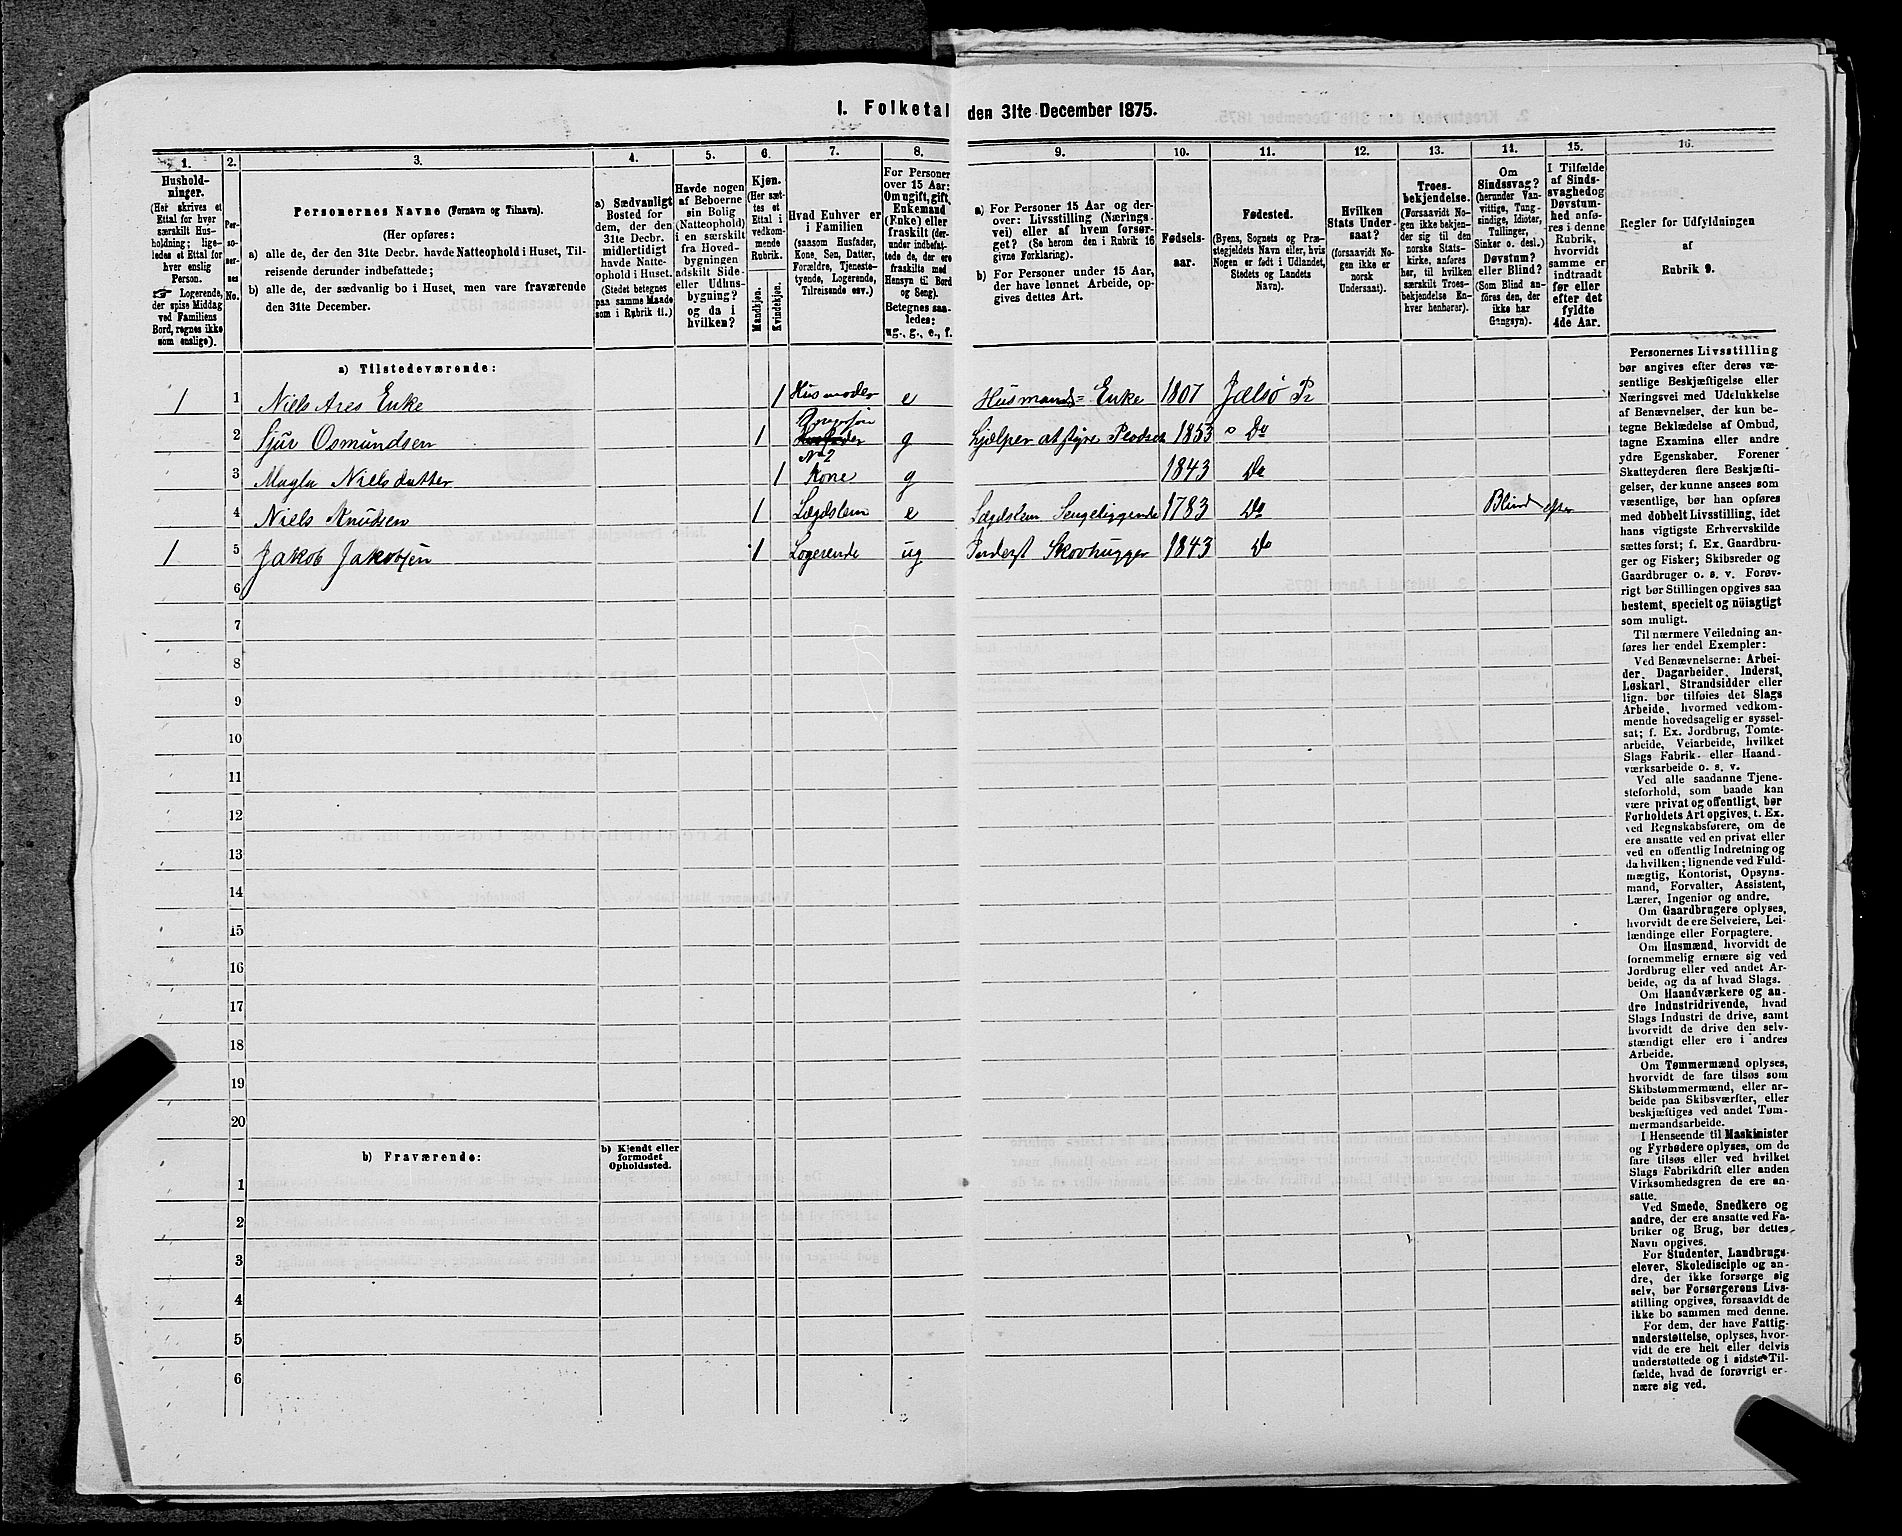 I. Folketal den 31te December 1875.
1. 2. 3. 4. 5. 6. 7. 8. 9. 10. 11. 12. 13. 14. 15. 16.
Hushold-
ninger.
(Her skrives et
Ettal for hver
særskilt Hus-
holdning; lige-
ledes et Ettal for
hver enslig
Person.
☞ Logerende,
der spise Middag
ved Familiens
Bord, regnes ikke
som enslige).
Per-
so-
ner-
nes
No.
Personernes Navne (Fornavn og Tilnavn).
(Her opføres:
a) alle de, der den 31te Decbr. havde Natteophold i Huset, Til-
reisende derunder indbefattede;
b) alle de, der sædvanlig bo i Huset, men vare fraværende
den 31te December.
a) Sædvanligt
Bosted for
dem, der den
31te Decbr.
midlertidigt
havde Natte-
ophold i Huset.
(Stedet betegnes
paa samme Maade
som i Rubrik 11.)
Havde nogen
af Beboerne
sin Bolig
(Natteophold)
i en særskilt
fra Hoved-
bygningen
adskilt Side-
eller Udhus-
bygning?
og da i
hvilken?
Kjøn.
(Her sæt-
tes et
Ettal i
vedkom-
mende
Rubrik.
Mandkjøn.
Kvindekjøn.
Hvad Enhver er
i Familien
(saasom Husfader,
Kone, Søn, Datter,
Forældre, Tjeneste-
tyende, Logerende,
Tilreisende osv.)
For Personer
over 15 Aar:
Om ugift, gift,
Enkemand
(Enke) eller
fraskilt (der-
under indbefat-
tede de, der ere
fraskilte med
Hensyn til Bord
og Seng).
Betegnes saa-
ledes:
ug., g., e., f.
a) For Personer 15 Aar og der-
over: Livsstilling (Nærings-
vei) eller af hvem forsør-
get? (Se herom den i Rubrik 16
givne Forklaring).
b) For Personer under 15 Aar,
der have lønnet Arbeide, op-
gives dettes Art.
Fødsels-
aar.
Fødested.
(Byens, Sognets og Præ-
stegjeldets Navn eller, hvis
Nogen er født i Udlandet,
Stedets og Landets
Navn).
Hvilken
Stats Under-
saat?
(forsaavidt No-
gen ikke er
norsk
Undersaat).
Troes-
bekjendelse.
(Forsaavidt No-
gen ikke bekjen-
der sig til den
norske Stats-
kirke, anføres
her, til hvilken
særskilt Troes-
bekjendelse En-
hver henhører).
Om
Sindssvag?
(herunder Van-
vittige, Tung-
sindige, Idioter,
Tullinger,
Sinker o. desl.)
Døvstum?
eller Blind?
(Som Blind an-
føres den, der
ikke har
Gangsyn).
I Tilfælde
af Sinds-
svaghedog
Døvstum-
hed anfø-
res i denne
Rubrik,
hvorvidt
samme er
indtraadt
før eller
efter det
fyldte
4de Aar.
Regler for Udfyldningen
af
Rubrik 9.
a) Tilstedeværende:
1 1 Niels Ares Enke 1 Husmoder e Husmands= Enke 1807 Jælsø Pr
2 Sjur Osmundsen 1 Husfader g hjælper at styre 1853 Do
No 2
3 Magla Nielsdatter 1 Kone g 1843 Do
4 Niels Knudsen 1 Lægdslem e Lægdslem Sengeliggende 1783 Do Blind efter
1 5 Jakob Jakobsen 1 Logerende ug Inderst Skovhugger 1843 Do
6
7
8
9
10
11
12
13
14
15
16
17
18
19
20
b) Fraværende:
b) Kjendt eller
formodet
Opholdssted.
1
2
3
4
5
6
Personernes Livsstilling
bør angives efter deres væ-
sentlige Beskjæftigelse eller
Næringsvei med Udelukkelse
af Benævnelser, der kun be-
tegne Beklædelse af Ombud,
tagne Examina eller andre
ydre Egenskaber. Forener
Skatteyderen flere Beskjæfti-
gelser, der kunne ansees som
væsentlige, bør han opføres
med dobbelt Livsstilling, idet
hans vigtigste Erhvervskilde
sættes først; f. Ex. Gaardbru-
ger og Fisker; Skibsreder og
Gaardbruger o. s. v. Forøv-
rigt bør Stillingen opgives saa
bestemt, specielt og nöiagtigt
som muligt.
Til nærmere Veiledning an-
føres her endel Exempler:
Ved Benævnelserne: Arbei-
der, Dagarbeider, Inderst,
Løskarl, Strandsidder eller
lign. bør tilføies det Slags
Arbeide, hvormed vedkom-
mende hovedsagelig er syssel-
sat; f. Ex. Jordbrug, Tomte-
arbeide, Veiarbeide, hvilket
Slags Fabrik- eller Haand-
værksarbeide o. s. v.
Ved alle saadanne Tjene-
steforhold, som baade kan
være privat og offentligt, bør
Forholdets Art opgives, t. Ex.
ved Regnskabsførere, om de
ere ansatte ved en privat eller
ved en offentlig Indretning og
da hvilken; lignende ved Fuld-
mægtig, Kontorist, Opsyns-
mand, Forvalter, Assistent,
Lærer, Ingeniør og andre.
Om Gaardbrugere oplyses,
hvorvidt de ere Selveiere, Lei-
lændinge eller Forpagtere.
Om Husmænd, hvorvidt de
fornemmelig ernære sig ved
Jordbrug eller ved andet Ar-
beide, og da af hvad Slags.
Om Haandværkere og an-
dre Industridrivende, hvad
Slags Industri de drive, samt
hvorvidt de drive den selv-
stændigt eller ere i andres
Arbeide.
Om Tømmermænd oplyses,
hvorvidt de fare tilsøs som
Skibstømmermænd, eller ar-
beide paa Skibsværfter, eller
beskjæftiges ved andet Tøm-
mermandsarbeide.
I Henseende til Maskinister
og Fyrbødere oplyses, om de
fare tilsøs eller ved hvilket
Slags Fabrikdrift eller anden
Virksomhedsgren de ere an-
satte.
Ved Smede, Snedkere og
andre, der ere ansatte ved Fa-
briker og Brug, bør dettes
Navn opgives.
For Studenter, Landbrugs-
elever, Skoledisciple og an-
dre, der ikke forsørge sig
selv, bør Forsørgerens Livs-
stilling opgives, forsaavidt de
ikke bo sammen med denne.
For dem, der have Fattig-
understøttelse, oplyses, hvor-
vidt de ere helt eller delvis
understøttede og i sidste Til-
fælde, hvad de forøvrigt er-
nære sig ved.